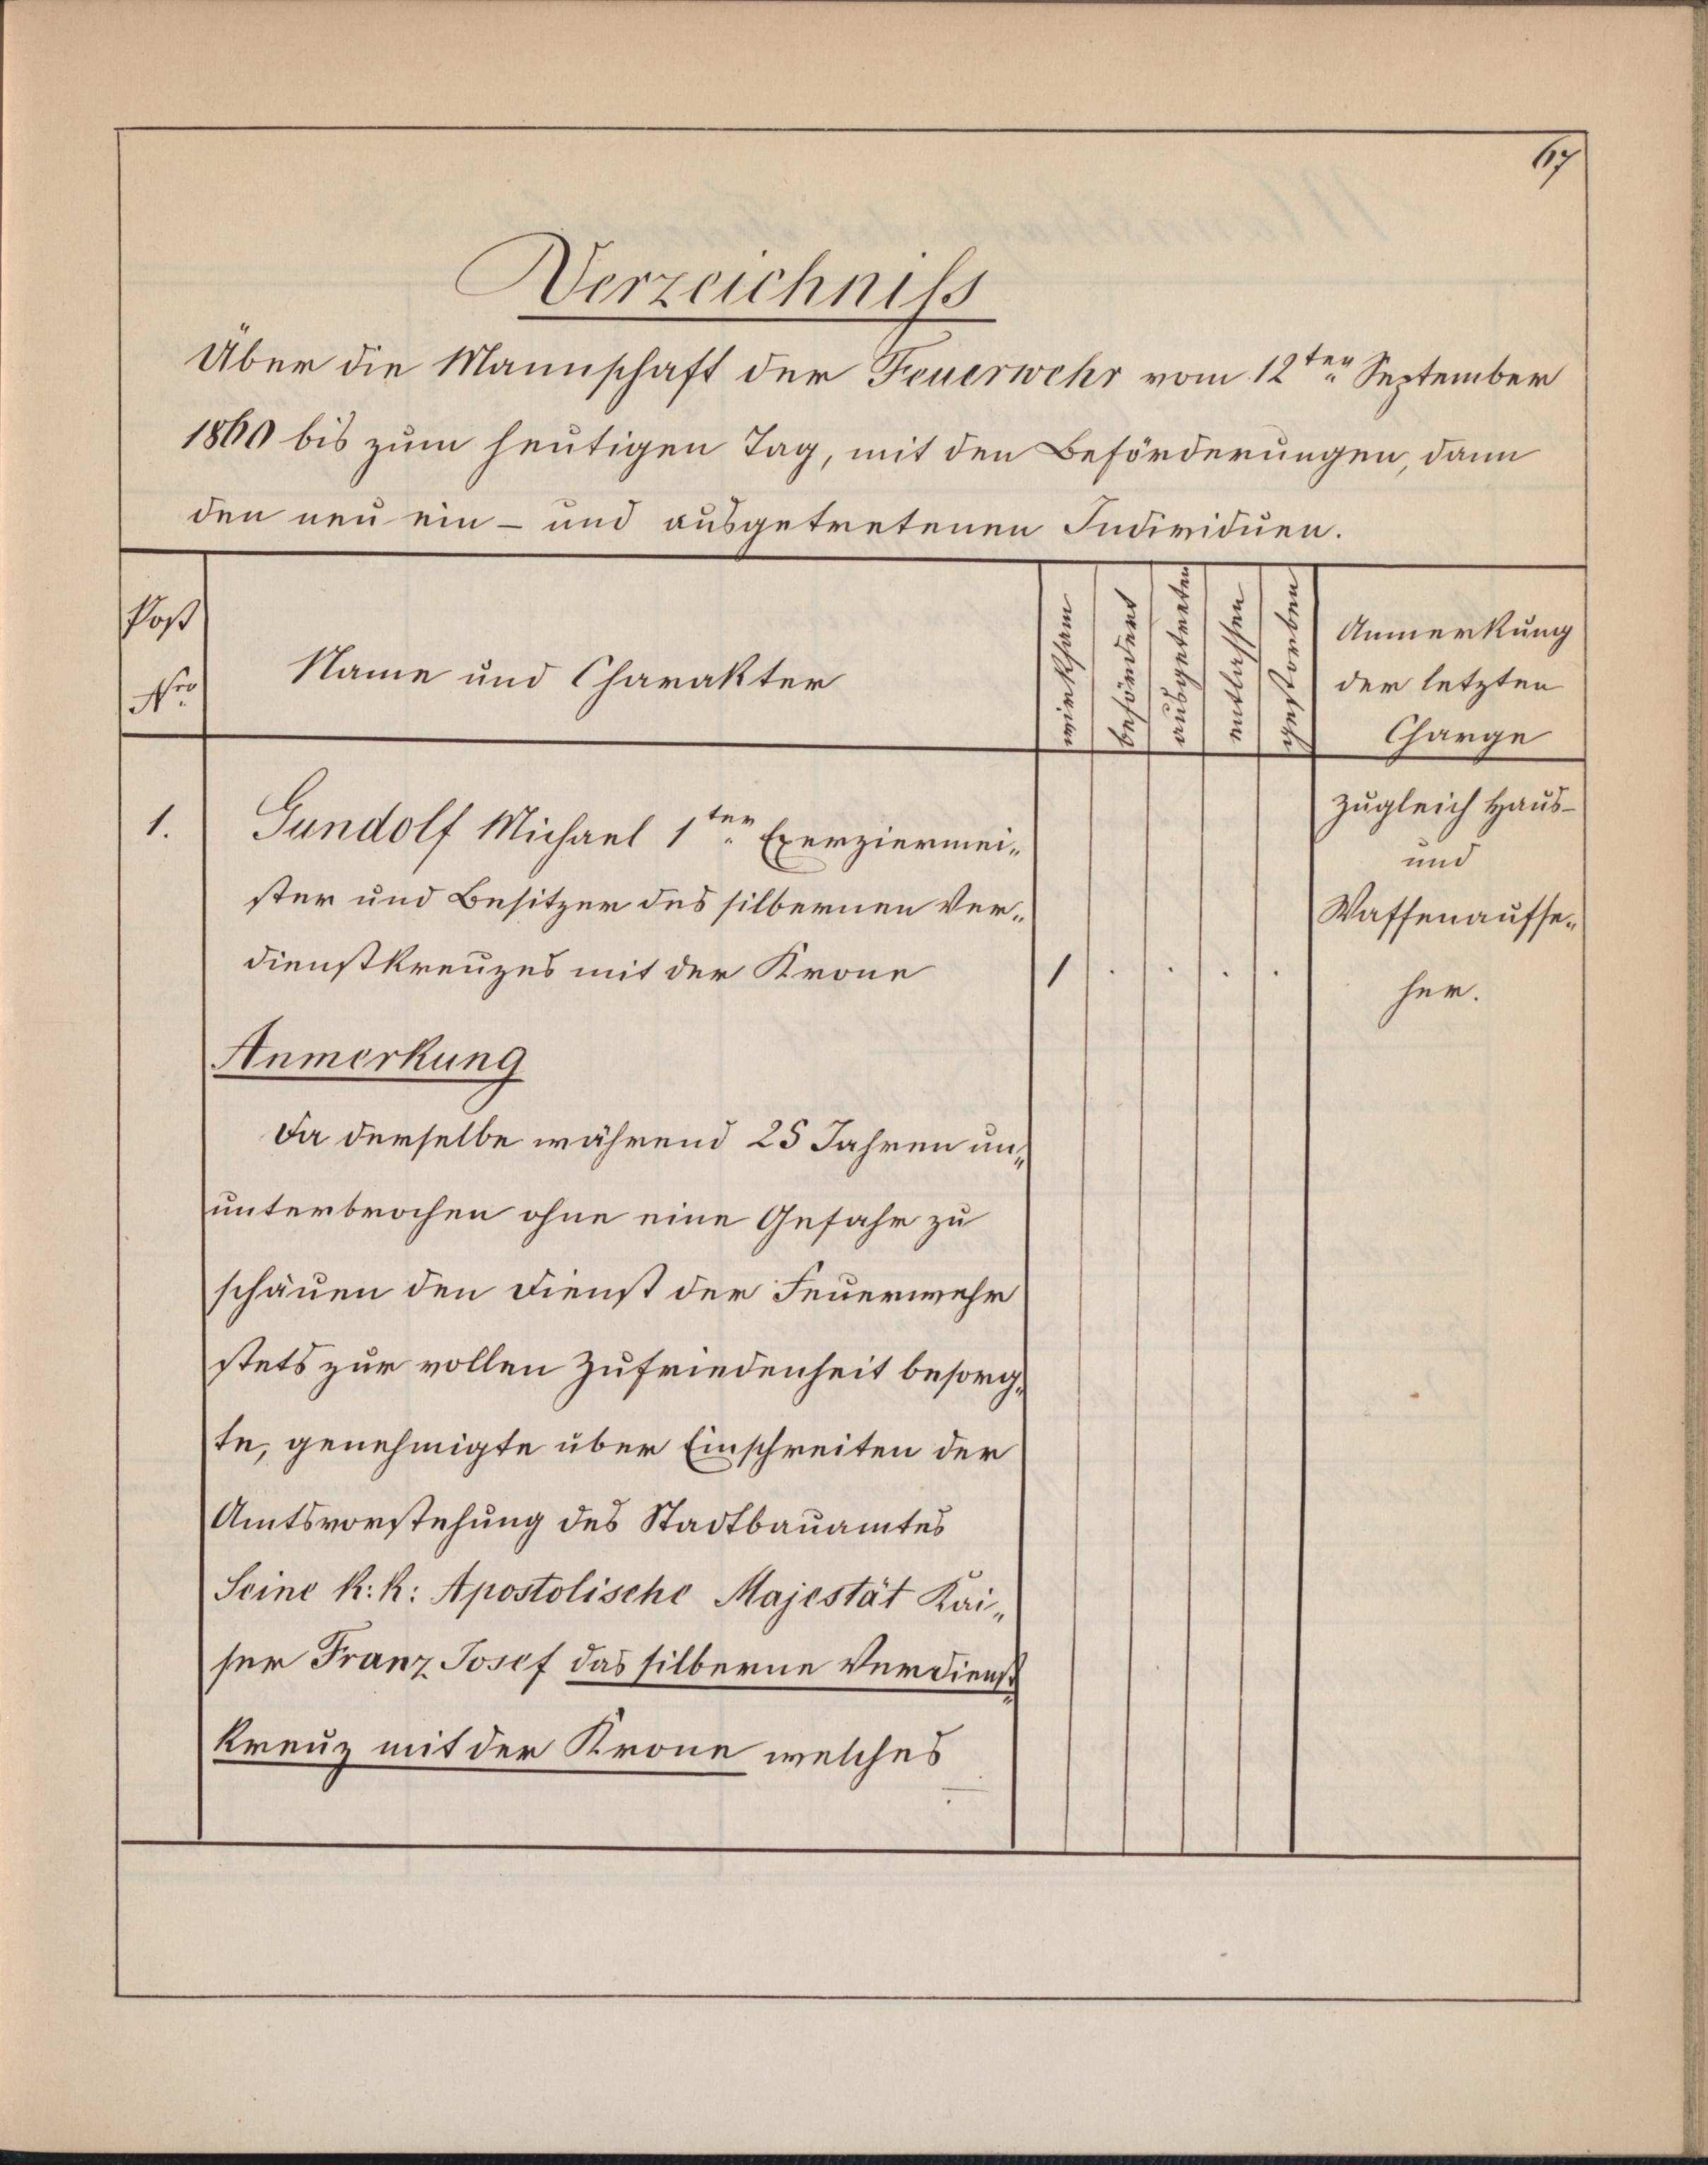 67
Verzeichniſs
Über die Mannschaft der Feuerwehr vom 12ten September
1860 bis zum heutigen Tag, mit den Beförderungen, dann
den neu ein- und ausgetretenen Individuen.
Post
Nro
Name und Charakter
wirksam
befördert
ausgetreten
entlassen
gestorben
Anmerkung
der letzten
Charge
1.
Gundolf Michael 1ter Exerziermei„
ster und Besitzer des silbernen Ver„
dienstkreuzes mit der Krone
1 . . . .
zugleich Haus-
und
Waffenaufse„
her.
Anmerkung
Da derselbe während 25 Jahren un„
unterbrochen ohne eine Gefahr zu
schäuen den Dienst der Feuerwehr
stets zur vollen Zufriedenheit besorg„
te, genehmigte über Einschreiten der
Amtsvorstehung des Stadtbauamtes
Seine k: k: Apostolische Majestät Kai„
ser Franz Josef das silberne Verdienst„
kreuz mit der Krone welches